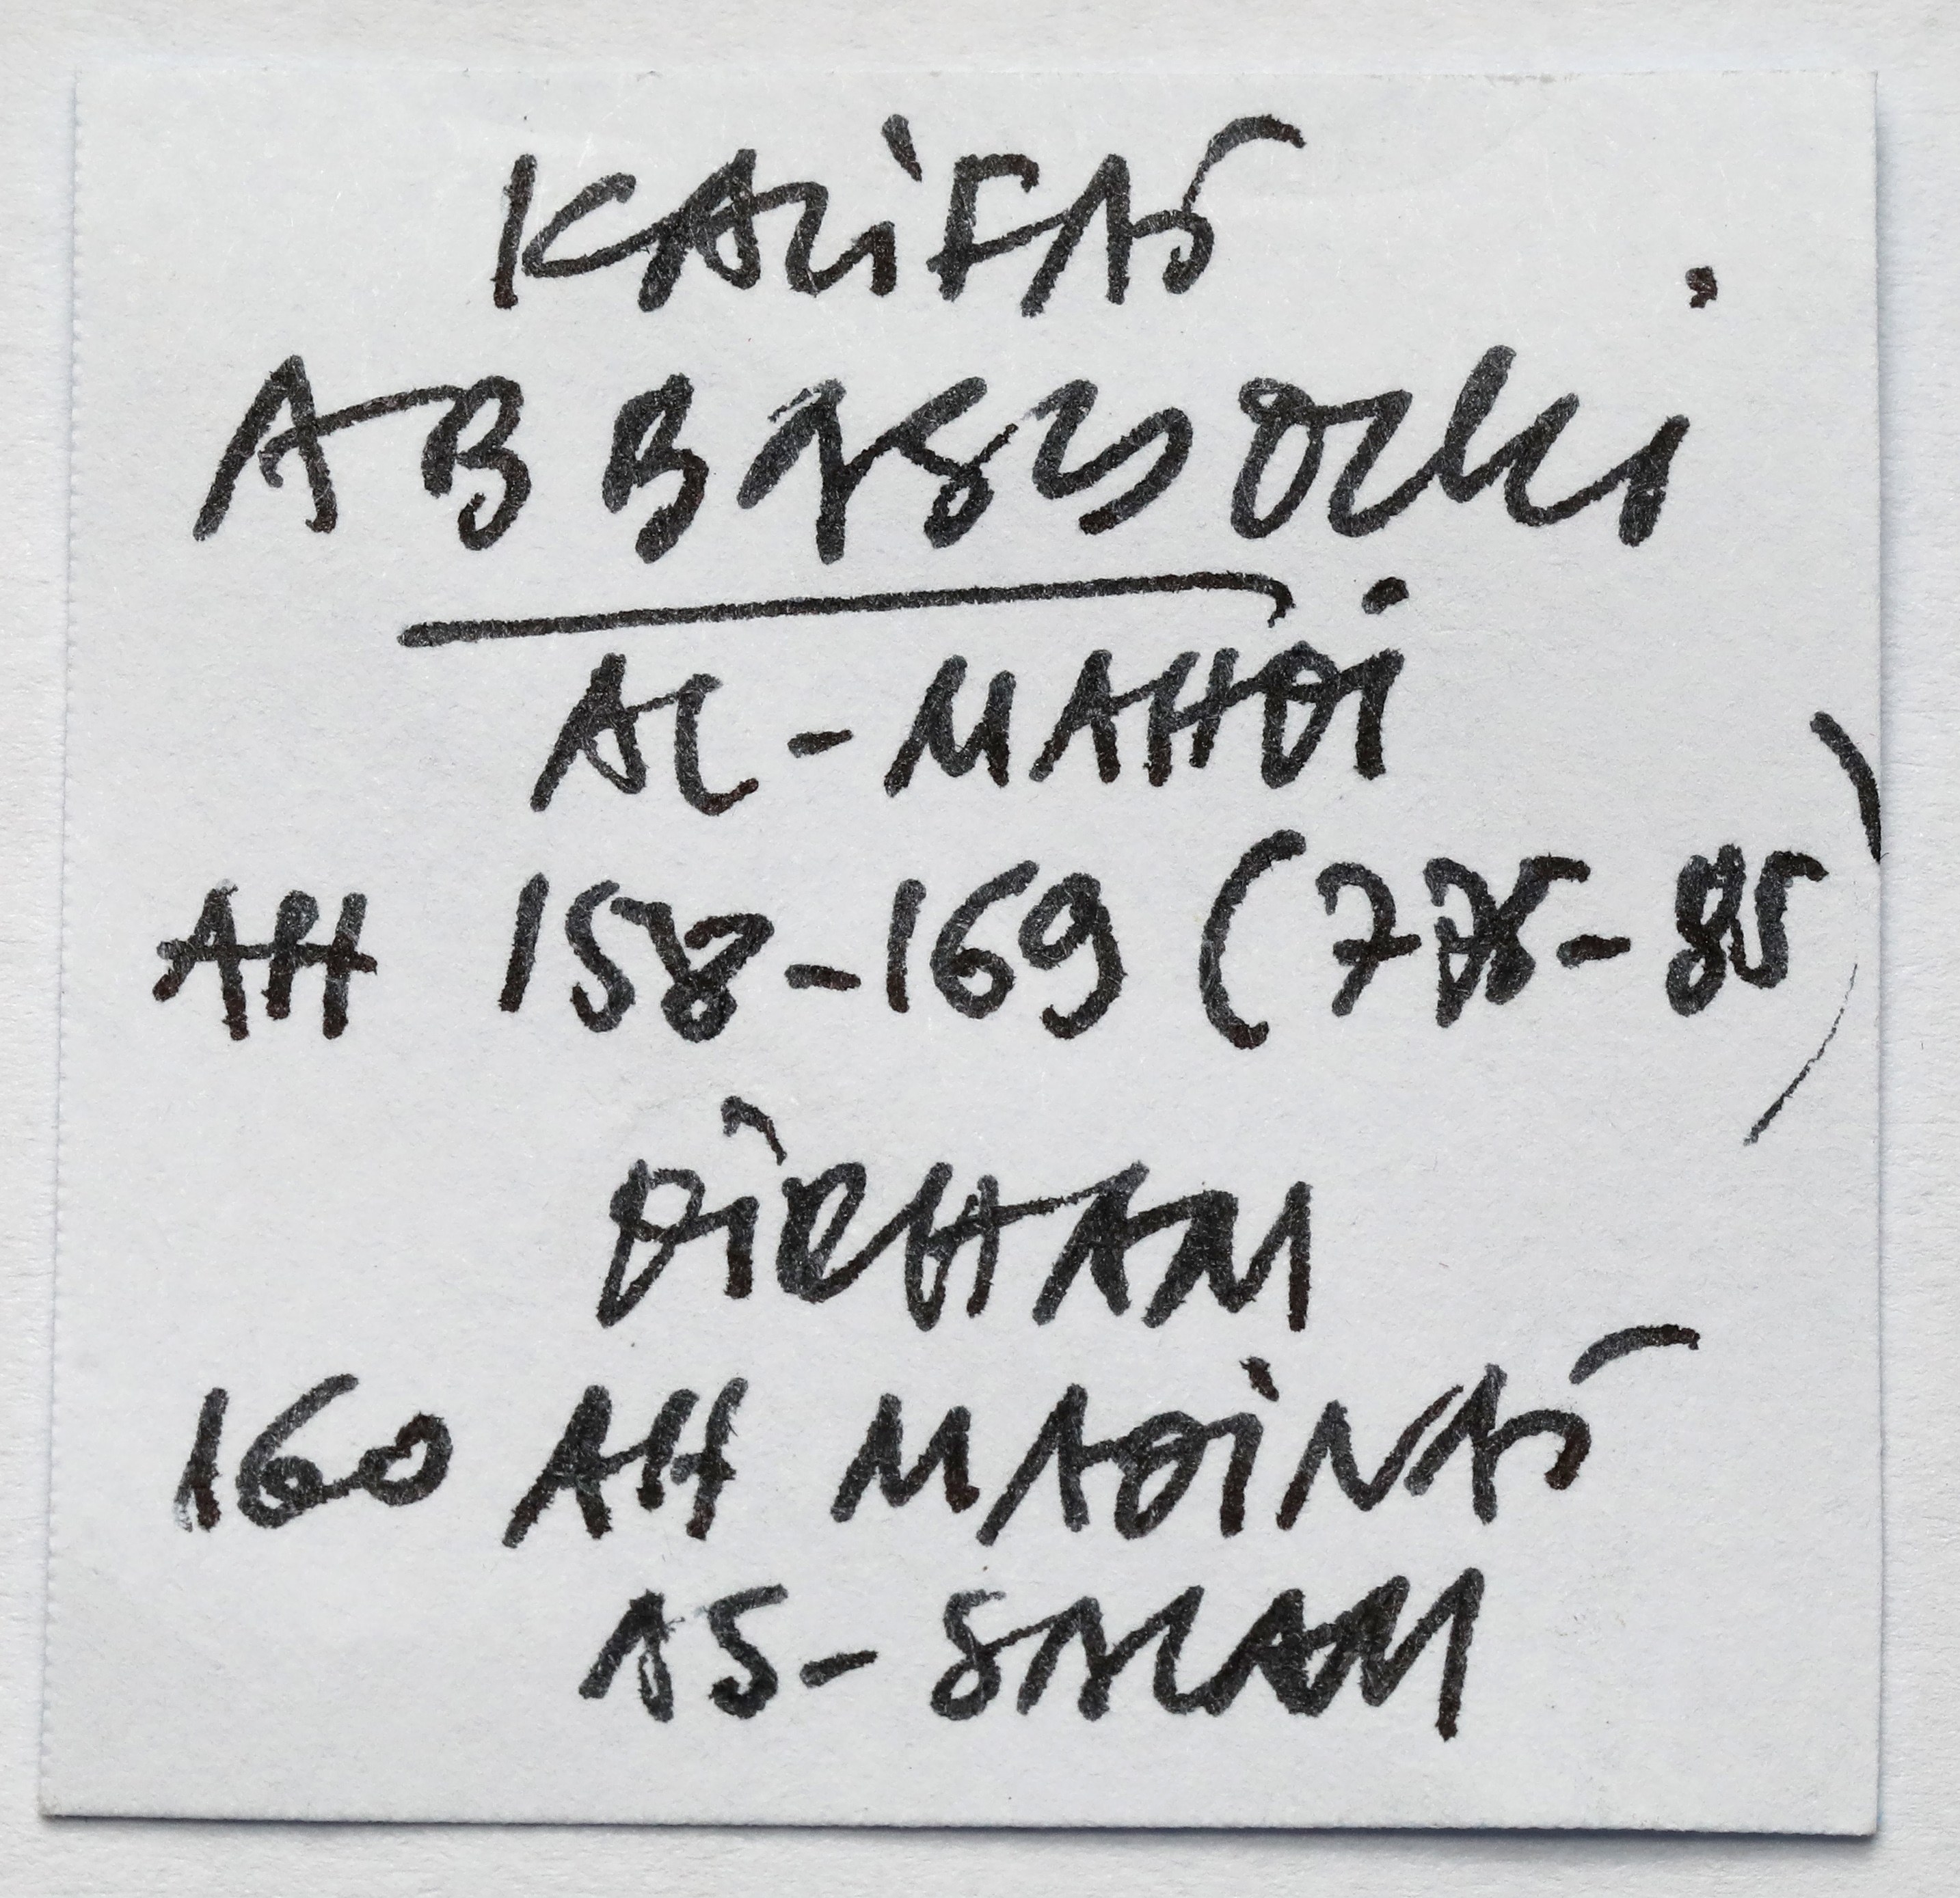 KALIFAT
ABBASYDZKI
AL-MAHDI
AH 158-169 (775-85)
DIRHAM
160 AH MADINAT
AS-SALAM